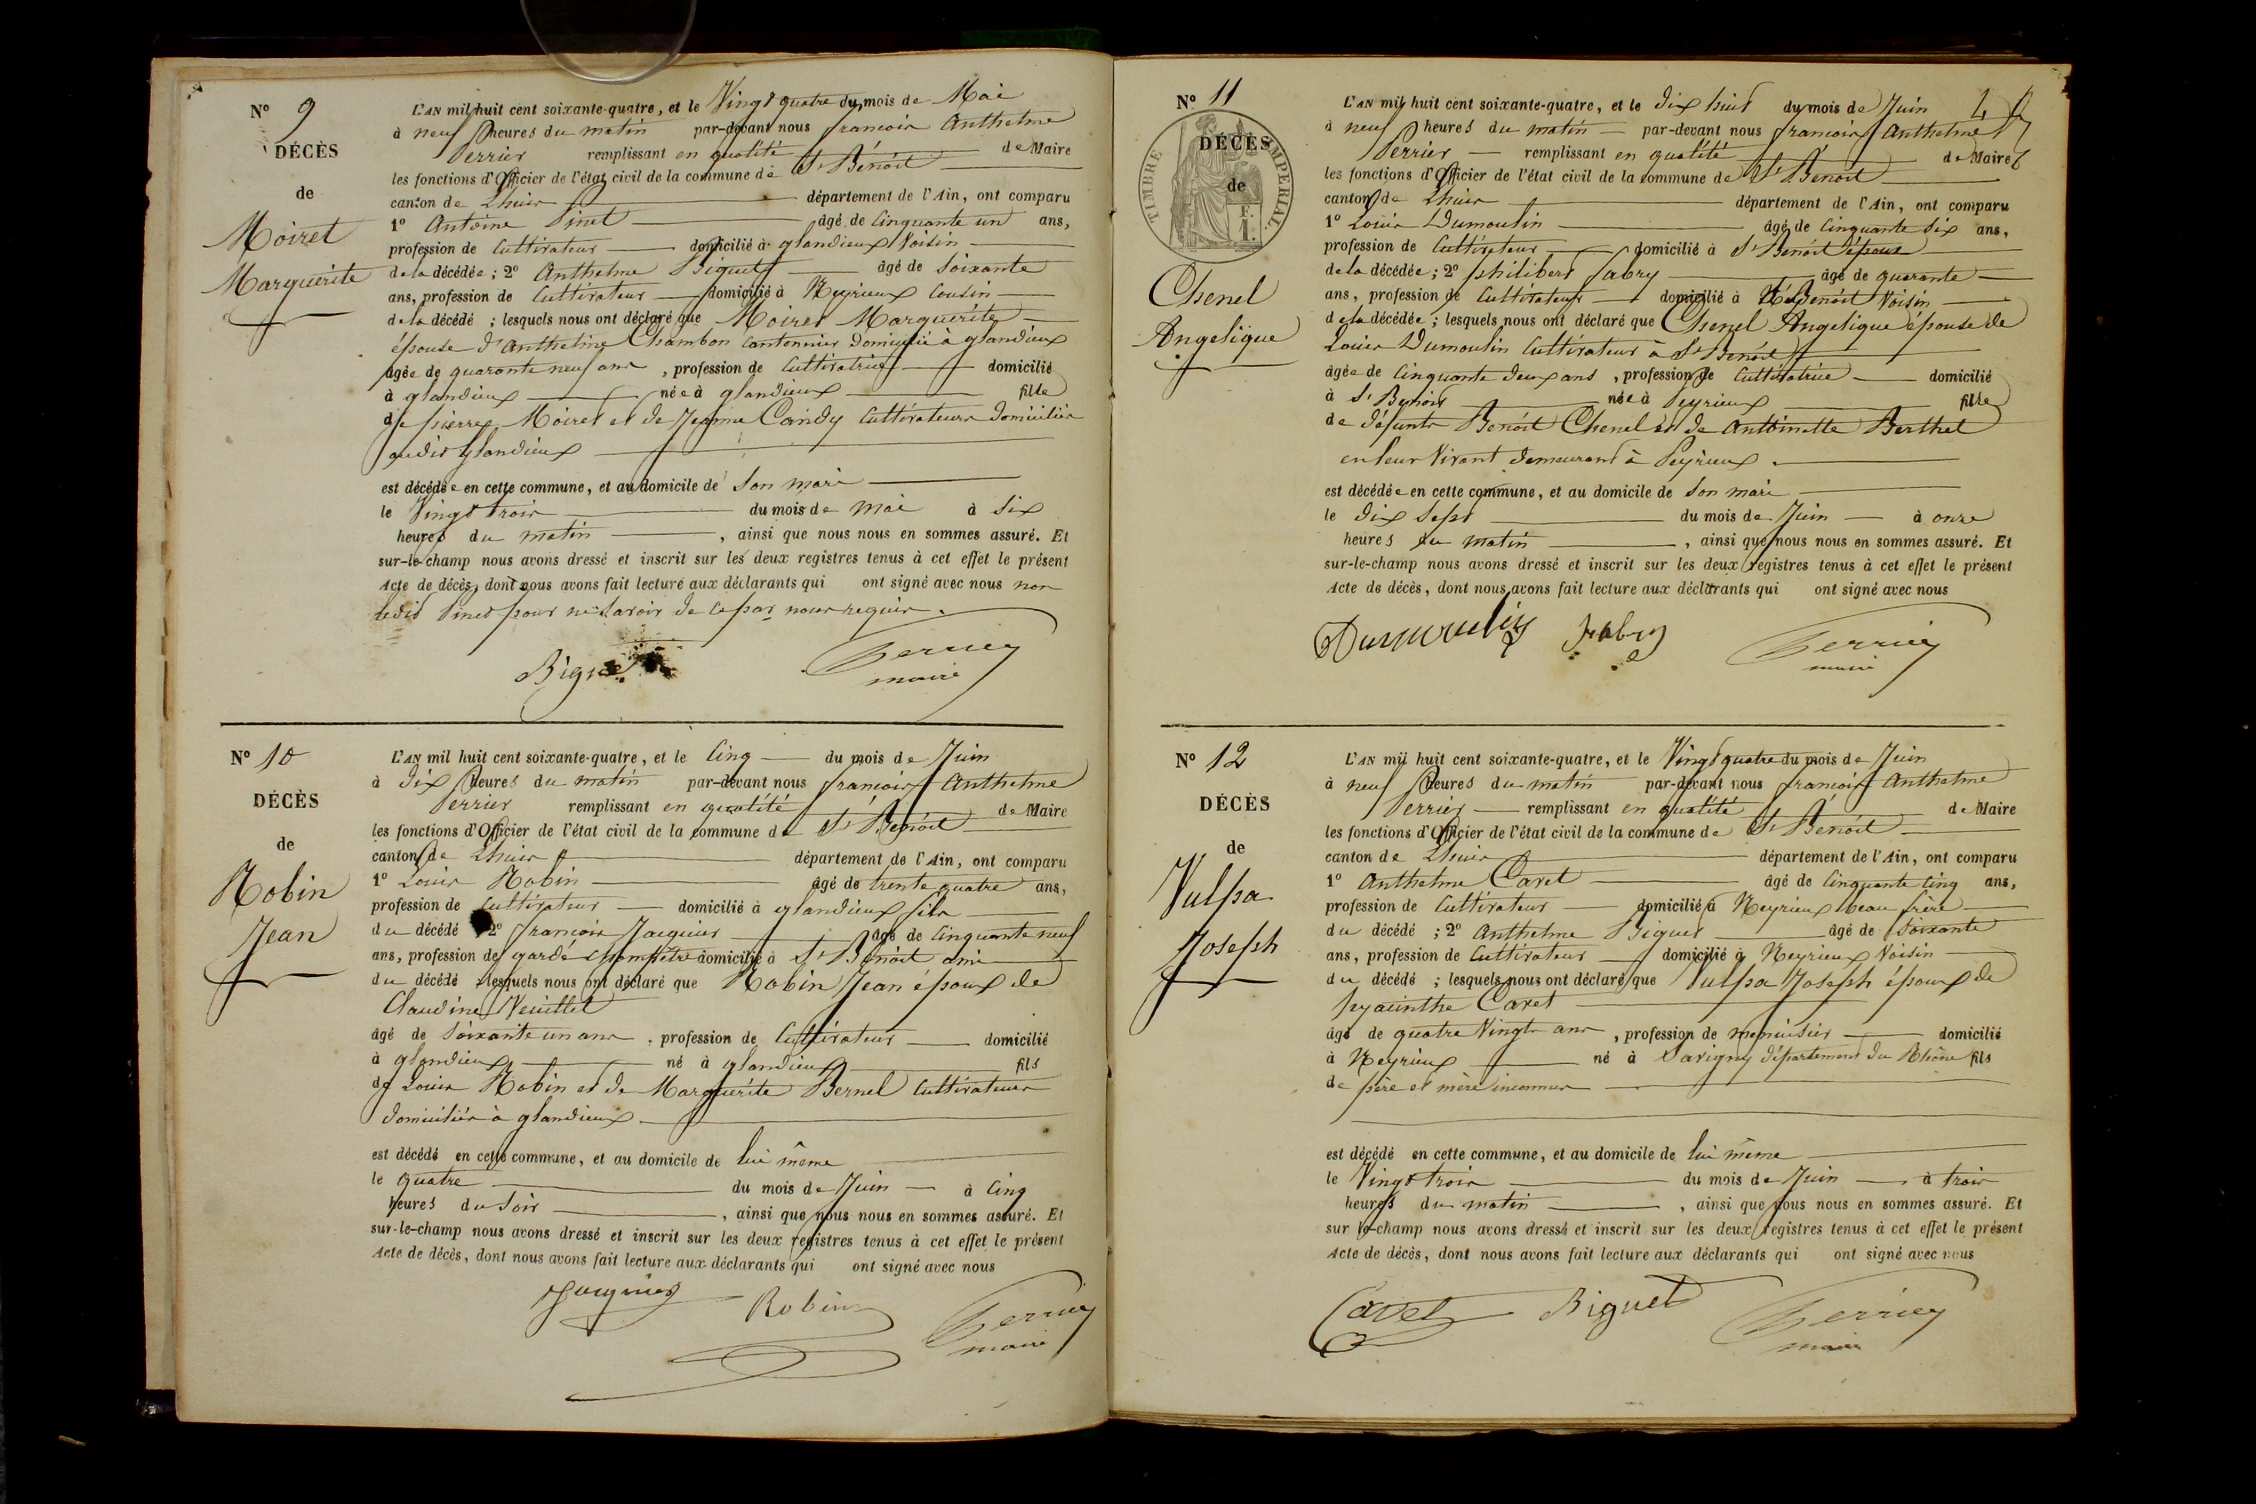 N° 9
DÉCÈS
de
Moiret
Marguerite
L'AN mil huit cent soixante-quatre, et le Vingt quatre du mois de Mai
à neuf heures du matin par-devant nous françois Anthelme
Perrier remplissant en qualité de Maire
les fonctions d'Officier de l'état civil de la commune de St Benoit
canton de Lhuis département de l'Ain, ont comparu
1° Antoine Pinet âgé de Cinquante un ans,
profession de Cultivateur domicilié à glandieux Voisin
de la décédée ; 2° Anthelme Biguet âgé de Soixante
ans, profession de Cultivateur domicilié à Neyrieux Cousin
de la décédé ; lesquels nous ont déclaré que Moiret Marguerite
épouse d'Anthelme Chambon Cantonnier domicilié à glandieux
âgée de quarante neuf ans , profession de Cultivatrice domicilié
à glandieux née à glandieux fille
de pierre Moiret et de Jeanne Candy Cultivateurs domiciliés
audit glandieux
est décédée en cette commune, et au domicile de Son mari
le Vingt trois du mois de mai à Six
heures du matin , ainsi que nous nous en sommes assuré. Et
sur-le-champ nous avons dressé et inscrit sur les deux registres tenus à cet effet le présent
Acte de décès, dont nous avons fait lecture aux déclarants qui ont signé avec nous non
ledit Pinet pour ne Savoir de ce par nous requis.
Biguet Perrier
maire
N° 10
DÉCÈS
de
Robin
Jean
L'AN mil huit cent soixante-quatre, et le Cinq du mois de Juin
à dix heures du matin par-devant nous françois Anthelme
Perrier remplissant en qualité de Maire
les fonctions d'Officier de l'état civil de la commune de St Benoit
canton de Lhuis département de l'Ain, ont comparu
1° Louis Robin âgé de trente quatre ans,
profession de Cultivateur domicilié à glandieux fils
du décédé 2° françois Jacquier âgé de Cinquante neuf
ans, profession de garde champêtre domicilié à St Benoit ami
du décédé lesquels nous ont déclaré que Robin Jean époux de
Claudine Neuillet
âgé de Soixante un ans , profession de Cultivateur domicilié
à glandieux né à glandieux fils
de Louis Robin et de Marguerite Bernel Cultivateurs
domiciliés à glandieux
est décédé en cette commune, et au domicile de lui même
le quatre du mois de Juin à Cinq
heures du Soir , ainsi que nous nous en sommes assuré. Et
sur-le-champ nous avons dressé et inscrit sur les deux registres tenus à cet effet le présent
Acte de décès, dont nous avons fait lecture aux déclarants qui ont signé avec nous
Jacquier Robin Perrier
maire
N° 11
TIMBRE IMPÉRIAL
DÉCÈS
de
Chenel
Angelique
L'AN mil huit cent soixante-quatre, et le dix huit du mois de Juin
à neuf heures du matin par-devant nous françois Anthelme
Perrier remplissant en qualité de Maire
les fonctions d'Officier de l'état civil de la commune de St Benoit
canton de Lhuis département de l'Ain, ont comparu
1° Louis Dumoulin âgé de Cinquante Six ans,
profession de Cultivateur domicilié à St Benoit époux
de la décédée ; 2° philibert fabry âgé de quarante
ans, profession de Cultivateur domicilié à St Benoit Voisin
de la décédée ; lesquels nous ont déclaré que Chenel Angelique épouse de
Louis Dumoulin Cultivateur à St Benoit
âgée de Cinquante deux ans , profession de Cultivatrice domicilié
à St Benoit née à Peyrieux fille
de défunts Benoit Chenel et de Antoinette Berthel
en leur Vivant demeurant à Peyrieux
est décédée en cette commune, et au domicile de Son mari
le dix Sept du mois de Juin à onze
heures du matin , ainsi que nous nous en sommes assuré. Et
sur-le-champ nous avons dressé et inscrit sur les deux registres tenus à cet effet le présent
Acte de décès, dont nous avons fait lecture aux déclarants qui ont signé avec nous
Dumoulin fabry Perrier
maire
N° 12
DÉCÈS
de
Vulpa
Joseph
L'AN mil huit cent soixante-quatre, et le Vingt quatre du mois de Juin
à neuf heures du matin par-devant nous françois Anthelme
Perrier remplissant en qualité de Maire
les fonctions d'Officier de l'état civil de la commune de St Benoit
canton de Lhuis département de l'Ain, ont comparu
1° Anthelme Cavet âgé de Cinquante Cinq ans,
profession de Cultivateur domicilié à Neyrieux beau frère
du décédé ; 2° Anthelme Biguet âgé de Soixante
ans, profession de Cultivateur domicilié à Neyrieux Voisin
du décédé ; lesquels nous ont déclaré que Vulpa Joseph époux de
hyacinthe Cavet
âgé de quatre Vingts ans , profession de menuisier domicilié
à Neyrieux né à Savigny département du Rhône fils
de père et mère inconnus
est décédé en cette commune, et au domicile de lui même
le Vingt trois du mois de Juin à trois
heures du matin , ainsi que nous nous en sommes assuré. Et
sur le-champ nous avons dressé et inscrit sur les deux registres tenus à cet effet le présent
Acte de décès, dont nous avons fait lecture aux déclarants qui ont signé avec nous
Cavet Biguet Perrier
maire